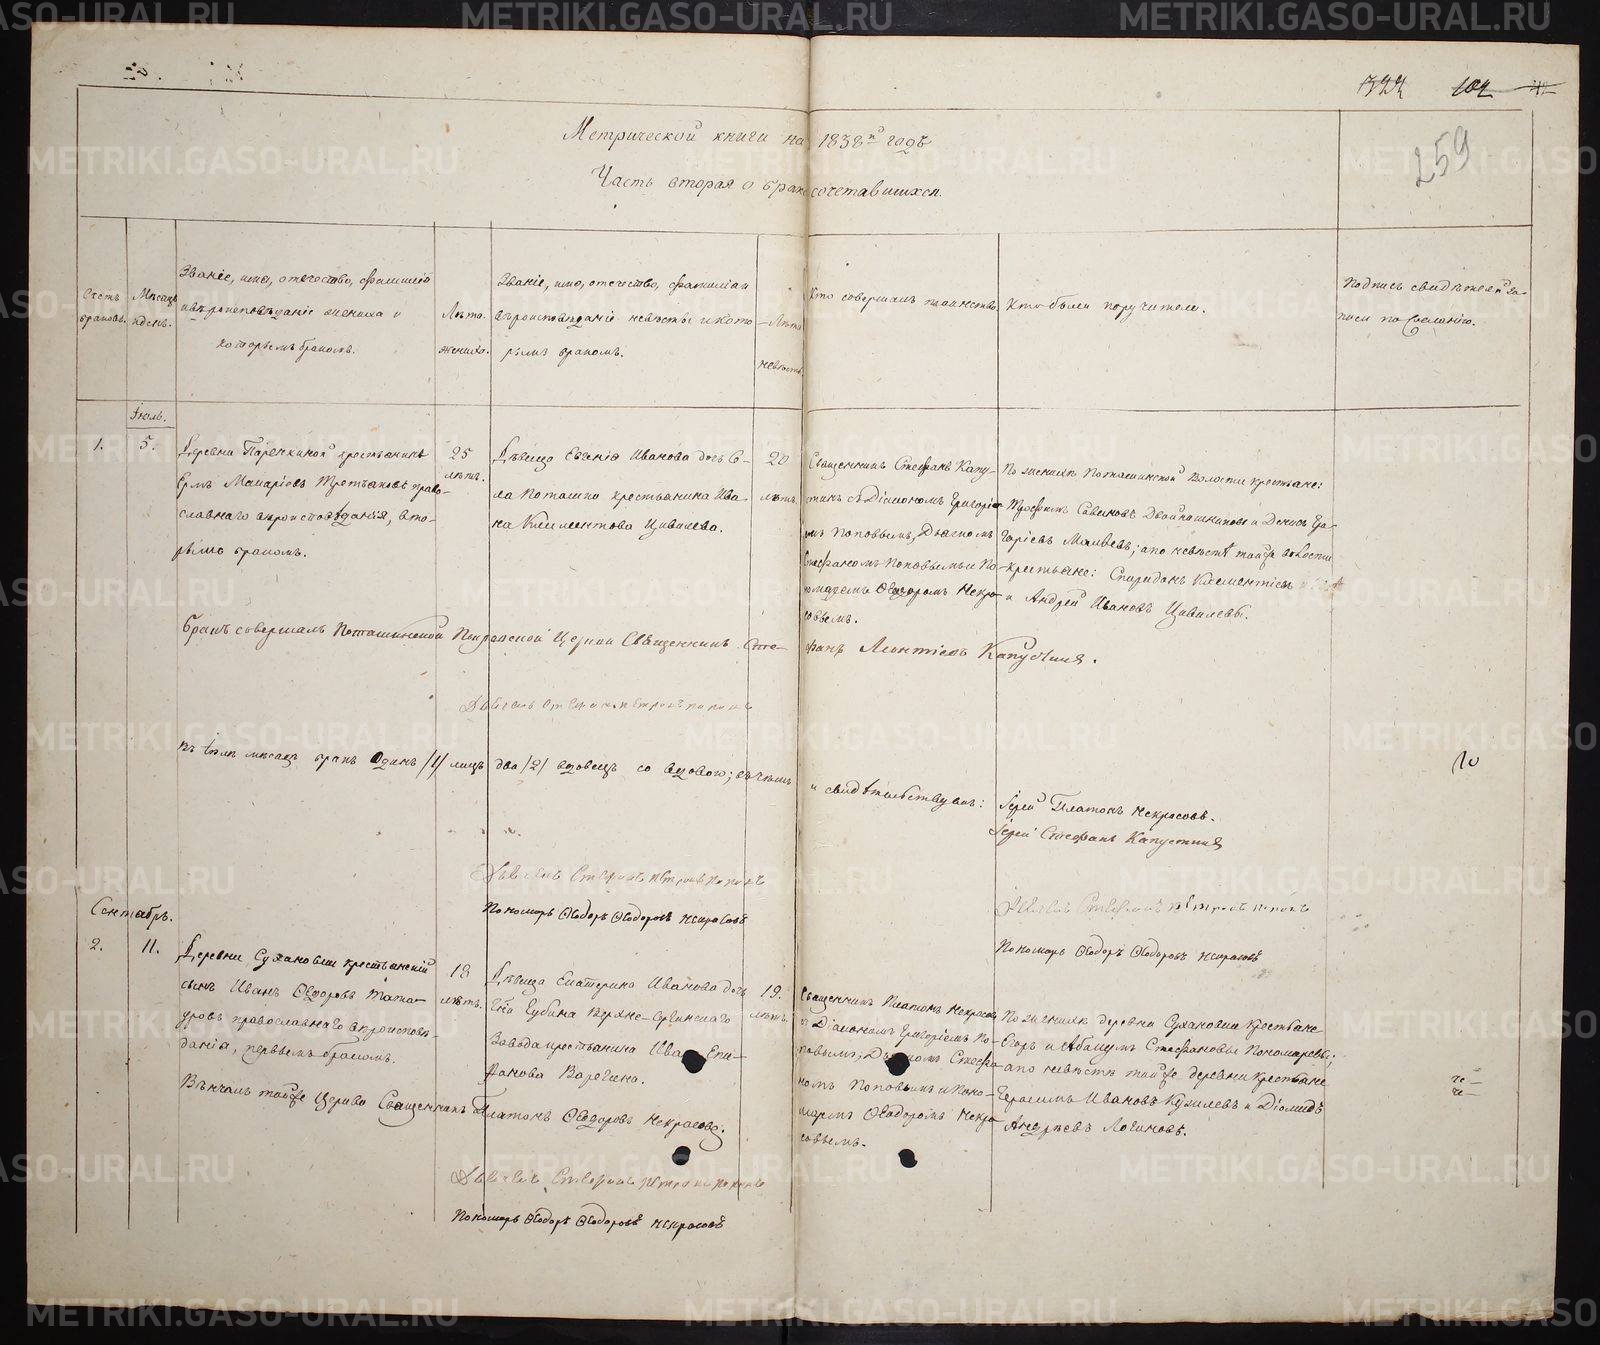 322 102
259
Метрической книги на 1838й годъ
Часть вторая о бракосочетавшихся.
Счетъ
браковъ.
Мѣсяцъ
и день.
Званіе, имя, отечество, фамилія
и вѣроисповѣданіе жениха и
которымъ бракомъ.
Лѣта
жениха.
Званіе, имя, отечество, фамилія и
вѣроисповѣданіе невѣсты и кото
рымъ бракомъ.
Лѣта
невѣсты.
Кто совершалъ таинство.
Кто были поручители.
Подпись свидѣтелей за-
писи по желанію.
Іюль.
1.
5.
Деревни крестьянинъ
Макаріевъ Третьяковъ право-
славнаго вѣроисповѣданія, вто-
рымъ бракомъ.
25
лѣтъ.
Дѣвица Евгенія Иванова дочь Се-
ла Поташки крестьянина Ива-
на Климентова Цивилева.
20
лѣтъ.
Священникъ Стефанъ Капу-
стинъ съ Діакономъ Григоріе-
мъ Поповымъ, Дьячкомъ
Стефаномъ Поповымъ и По-
номаремъ Ѳедоромъ Некра-
совымъ.
По женихѣ Поташинской Волости крестьяне:
Трофимъ Савиновъ и Денисъ Гри-
горіевъ; а по невѣстѣ той же волости
крестьяне: Спиридонъ Климентіевъ
и Андрей Ивановъ Цивилевы.
Бракъ совершалъ Поташинской Покровской Церкви Священникъ Сте-
фанъ Леонтіевъ Капустинъ.
Дьячекъ Стефанъ Петровъ Поповъ
Въ Іюлѣ мѣсяцѣ бракъ одинъ /1/ лицъ два /2/ вдовецъ со вдовою; въ чемъ
и свидѣтельствуемъ:
Іерей Платонъ Некрасовъ.
Іерей Стефанъ Капустинъ
Дьячекъ Стефанъ Петровъ Поповъ
Пономарь Ѳедоръ Ѳедоровъ Некрасовъ
Дьячекъ Стефанъ Петровъ Поповъ
Пономарь Ѳедоръ Ѳедоровъ Некрасовъ
Сентябрь.
2.
11.
Деревни Сухановки крестьянскій
сынъ Иванъ Ѳедоровъ
православнаго вѣроисповѣ-
данія, первымъ бракомъ.
18
лѣтъ.
Дѣвица Екатерина Иванова дочь
Верхне-Сергинскаго
Завода крестьянина Ивана Епи-
фанова
19.
лѣтъ.
Священникъ Платонъ Некрасовъ
съ Діакономъ Григоріемъ По-
повымъ, Дьячкомъ Стефа-
номъ Поповымъ и Поно-
маремъ Ѳедоромъ Некра-
совымъ.
По женихѣ деревни Сухановки крестьяне
Егоръ и Абакумъ Стефановы Пономаревы;
а по невѣстѣ той же деревни крестьяне
Герасимъ Ивановъ и Діомидъ
Андреевъ Логиновъ.
Вѣнчалъ той же Церкви Священникъ Платонъ Ѳедоровъ Некрасовъ.
Дьячекъ Стефанъ Петровъ Поповъ
Пономарь Ѳедоръ Ѳедоровъ Некрасовъ
METRIKI.GASO-URAL.RU